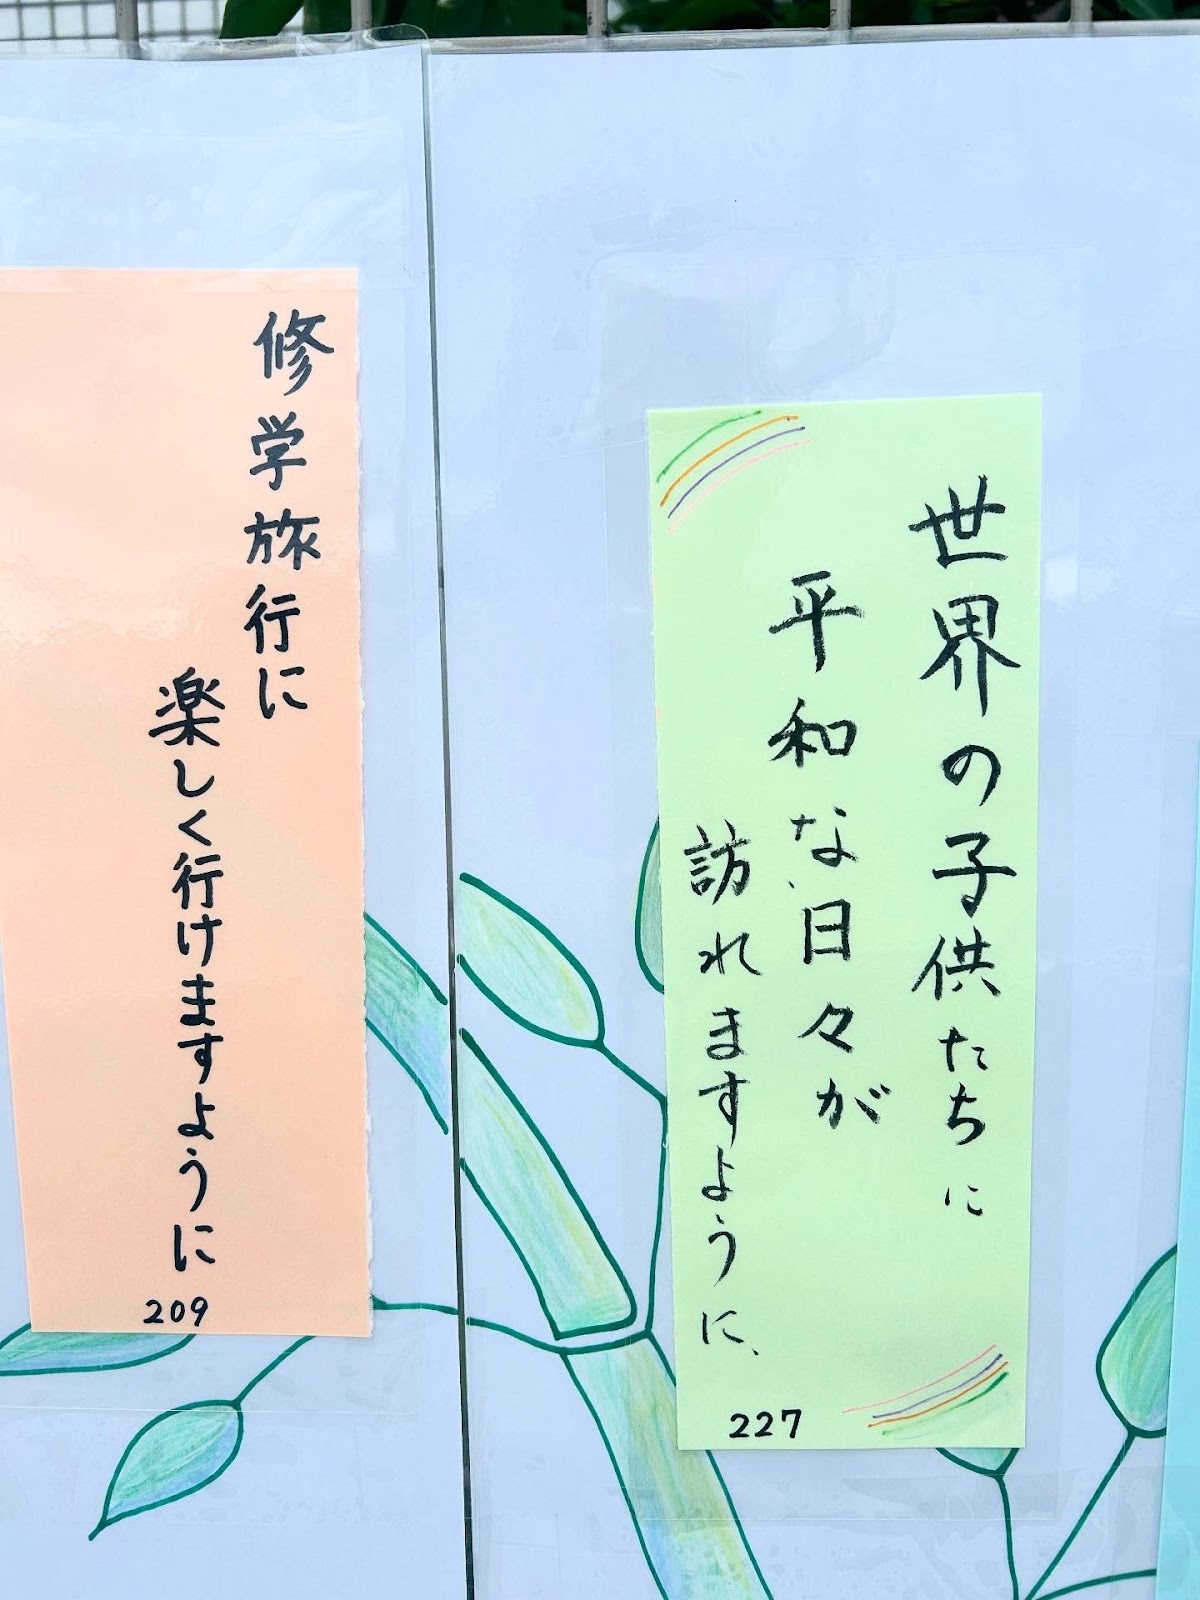 修学旅行に
楽しく行けますように
209
世界の子供たちに
平和な日々が
訪れますように、
227